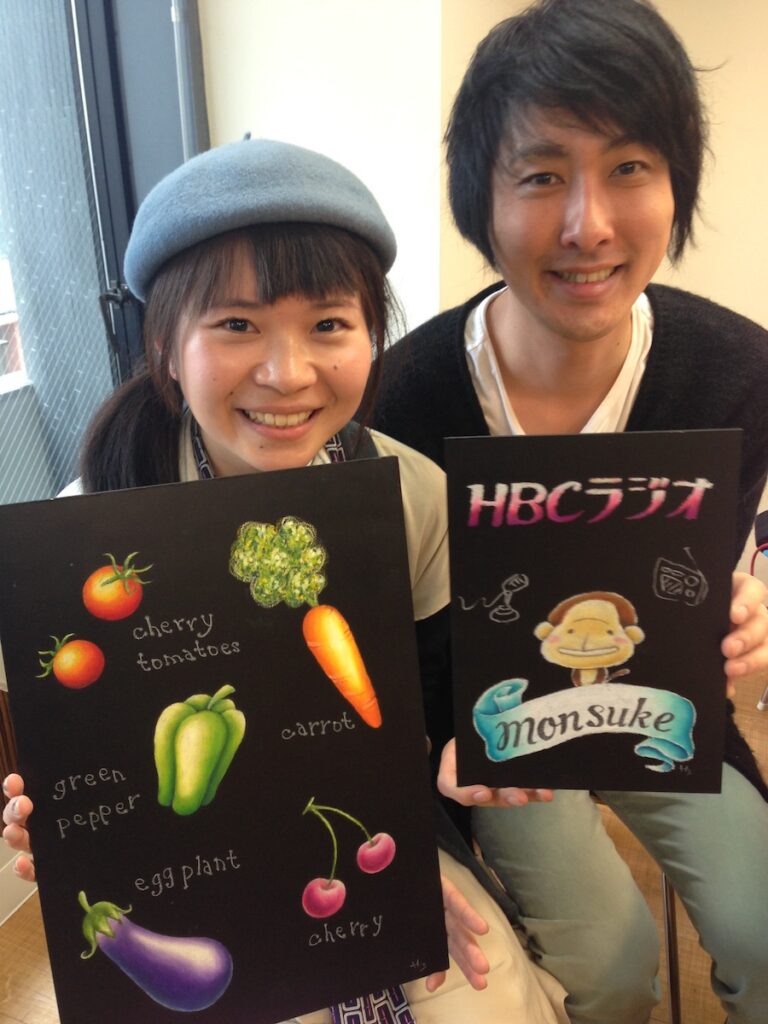 cherry
tomatoes
carrot
green
pepper
egg plant
cherry
HBCラジオ
monsuke